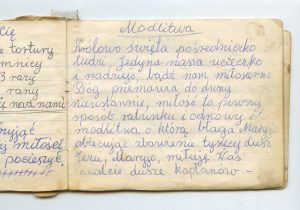 tortury
mnicy
3 razy
rany
nad nami
miłość
pocieszyć
Modlitwa
Królowo święta pośredniczko
ludzi. Jedyna nasza ucieczko
i nadziejo, bądź nam miłosierna
Bóg przemawia do duszy
nieustannie, miłość to pewny
sposób ratunku i odnowy
modlitwa o którą błaga Maryja
obiecując zbawienie tysięcy dusz
Jezu, Maryjo, miłuję Was
ratujcie dusze kapłanów